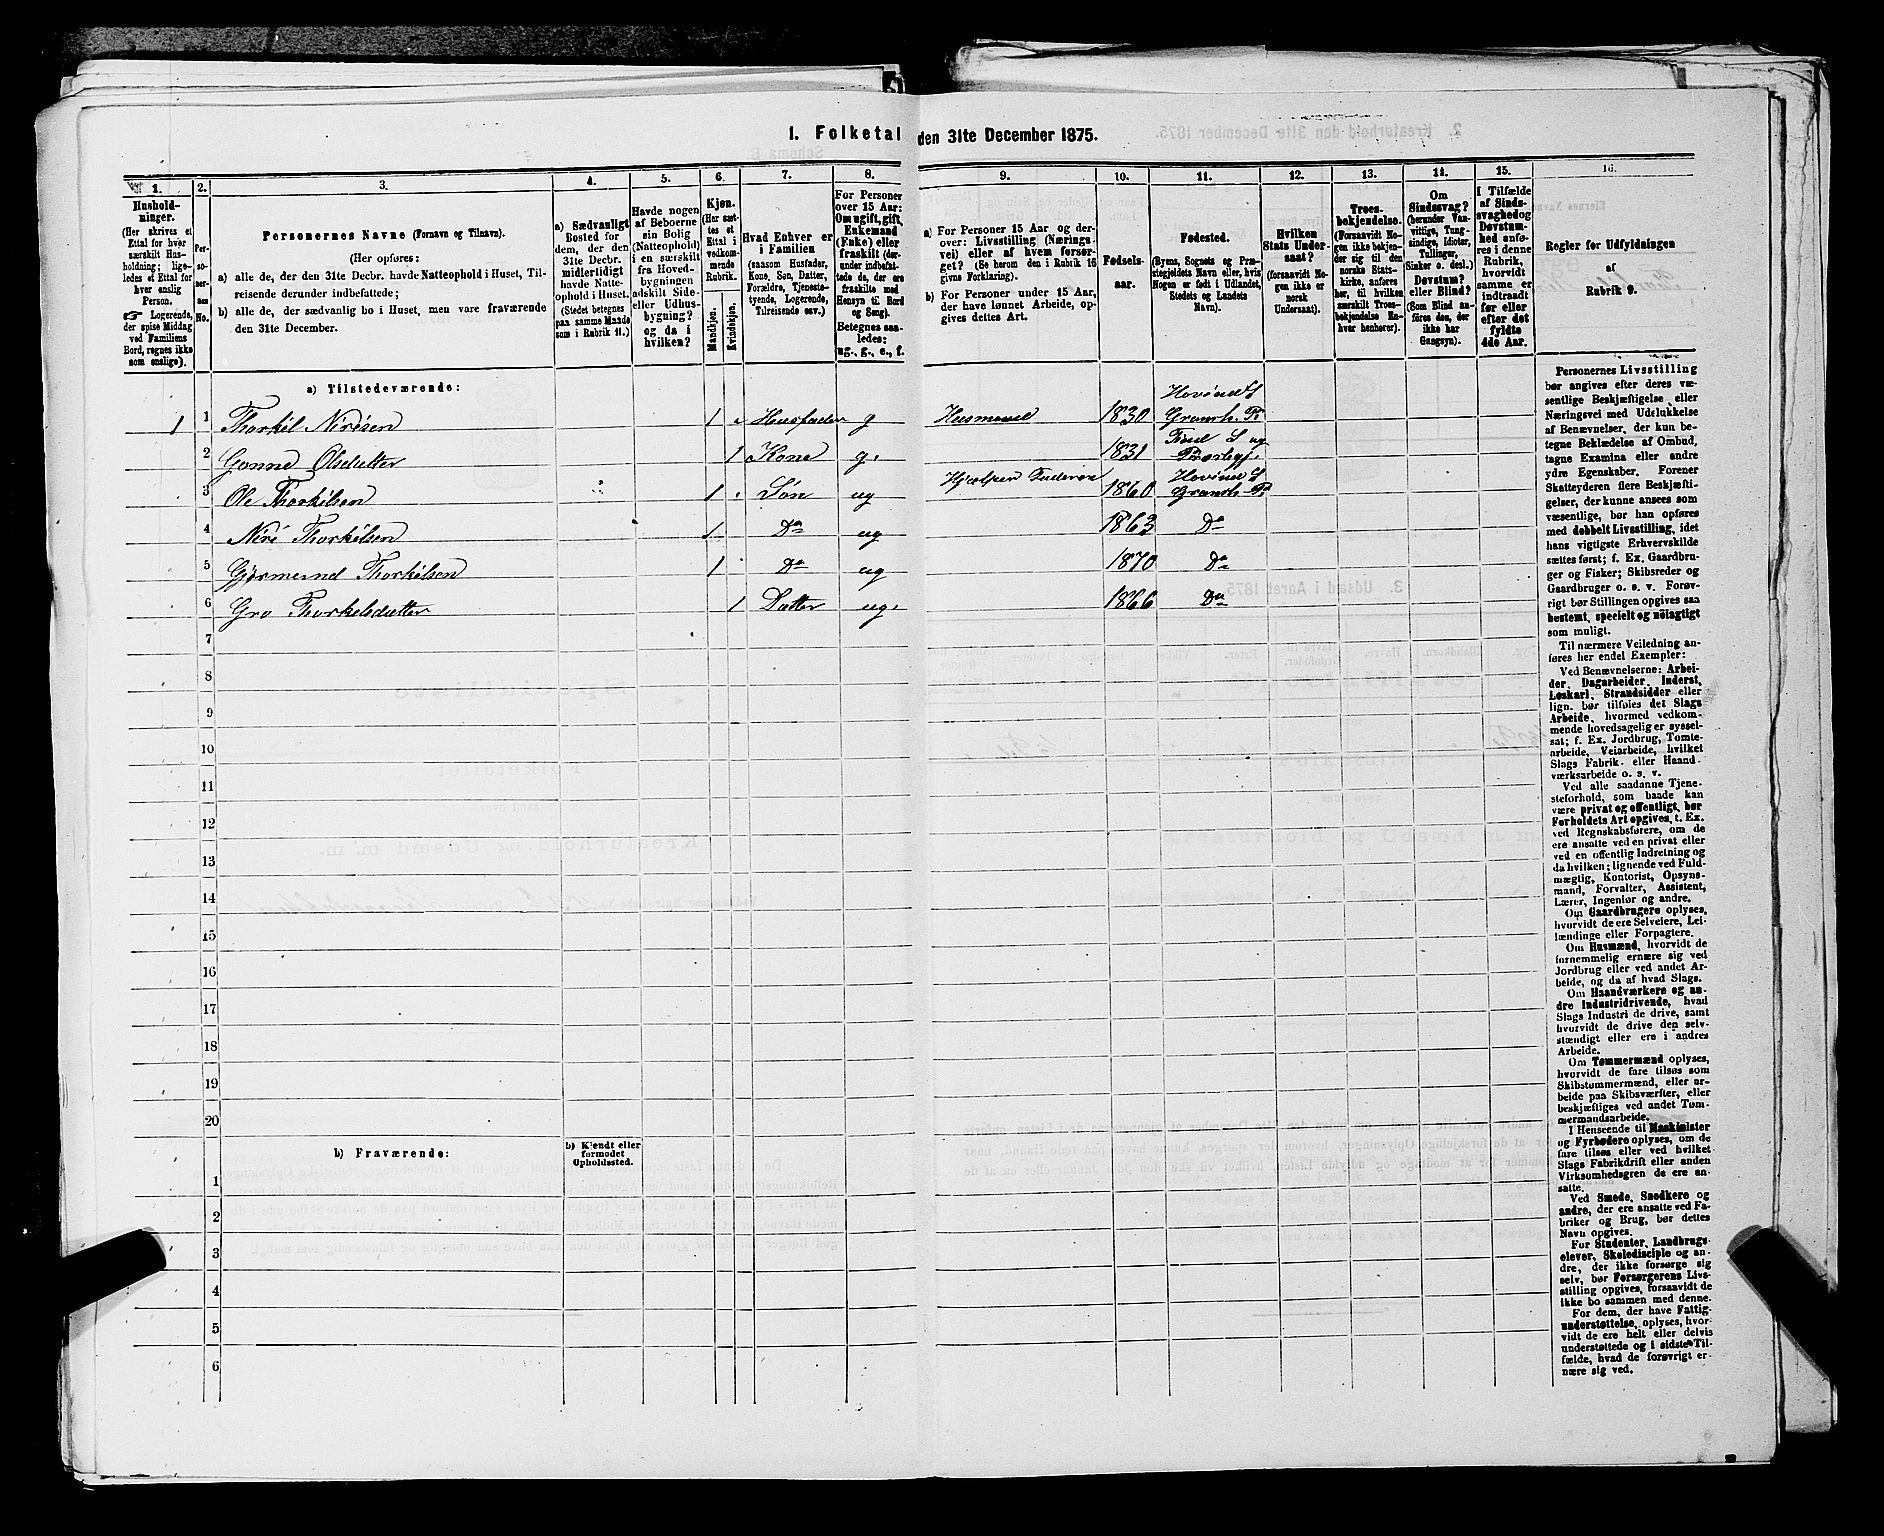 1. Folketal den 31te December 1875.
1.
2.
3.
4.
5.
6.
7.
8.
9.
10.
11.
12.
13.
14.
15.
16.
Hushold-
ninger.
(Her skrives et
Ettal for hver
særskilt Hus-
holdning; lige-
ledes et Ettal for
hver enslig
Person.
☞ Logerende,
der spise Middag
ved Familiens
Bord, regnes ikke
som enslige).
Per-
so-
ner-
nes
No.
Personernes Navne (Fornavn og Tilnavn).
(Her opføres:
a) alle de, der den 31te Decbr. havde Natteophold i Huset, Til-
reisende derunder indbefattede;
b) alle de, der sædvanlig bo i Huset, men vare fraværende
den 31te December.
a) Sædvanligt
Bosted for
dem, der den
31te Decbr.
midlertidigt
havde Natte-
ophold i Huset.
(Stedet betegnes
paa samme Maade
som i Rubrik 11.)
Havde nogen
af Beboerne
sin Bolig
(Natteophold)
i en særskilt
fra Hoved-
bygningen
adskilt Side-
eller Udhus-
bygning?
og da i
hvilken?
Kjøn.
(Her sæt-
tes et
Ettal i
vedkom-
mende
Rubrik.
Mandkjøn.
Kvindekjøn.
Hvad Enhver er
i Familien
(saasom Husfader,
Kone, Søn, Datter,
Forældre, Tjeneste-
tyende, Logerende,
Tilreisende osv.)
For Personer
over 15 Aar:
Om ugift, gift,
Enkemand
(Enke) eller
fraskilt (der-
under indbefat-
tede de, der ere
fraskilte med
Hensyn til Bord
og Seng).
Betegnes saa-
ledes:
ug., g., e., f.
a) For Personer 15 Aar og der-
over: Livsstilling (Nærings-
vei) eller af hvem forsør-
get? (Se herom den i Rubrik 16
givne Forklaring).
b) For Personer under 15 Aar,
der have lønnet Arbeide, op-
gives dettes Art.
Fødsels-
aar.
Fødested.
(Byens, Sognets og Præ-
stegjeldets Navn eller, hvis
Nogen er født i Udlandet,
Stedets og Landets
Navn).
Hvilken
Stats Under-
saat?
(forsaavidt No-
gen ikke er
norsk
Undersaat).
Troes-
bekjendelse.
(Forsaavidt No-
gen ikke bekjen-
der sig til den
norske Stats-
kirke, anføres
her, til hvilken
særskilt Troes-
bekjendelse En-
hver henhører).
Om
Sindssvag?
(herunder Van-
vittige, Tung-
sindige, Idioter,
Tullinger,
Sinker o. desl.)
Døvstum?
eller Blind?
(Som Blind an-
føres den, der
ikke har
Gangsyn).
I Tilfælde
af Sinds-
svaghed og
Døvstum-
hed anfø-
res i denne
Rubrik,
hvorvidt
samme er
indtraadt
før eller
efter det
fyldte
4de Aar.
Regler for Udfyldningen
af
Rubrik 9.
a) Tilstedeværende:
1 1 Thorkil Nirisen 1 Husfader g Husmand 1830 Hovind S
Gransh. Pr
2 Gonne Olsdatter 1 Kone g. 1831 Tind S og
Præstegj.
3 Ole Thorkilsen 1 Søn ug Hjælper Faderen 1860 Hovind S
Gransh. Pr
4 Niri Thorkilsen 1 Do ug 1863 Do
5 Gjermund Thorkilsen 1 Do ug 1870 Do
6 Gro Thorkelsdatter 1 Datter ug. 1866 Do
7
8
9
10
11
12
13
14
15
16
17
18
19
20
b) Fraværende:
b) Kjendt eller
formodet
Opholdssted.
1
2
3
4
5
6
Personernes Livsstilling
bør angives efter deres væ-
sentlige Beskjæftigelse eller
Næringsvei med Udelukkelse
af Benævnelser, der kun be-
tegne Beklædelse af Ombud,
tagne Examina eller andre
ydre Egenskaber. Forener
Skatteyderen flere Beskjæfti-
gelser, der kunne ansees som
væsentlige, bør han opføres
med dobbelt Livsstilling, idet
hans vigtigste Erhvervskilde
sættes først; f. Ex. Gaardbru-
ger og Fisker; Skibsreder og
Gaardbruger o. s. v. Forøv-
rigt bør Stillingen opgives saa
bestemt, specielt og nøiagtigt
som muligt.
Til nærmere Veiledning an-
føres her endel Exempler:
Ved Benævnelserne: Arbei-
der, Dagarbeider, Inderst,
Løskarl, Strandsidder eller
lign. bør tilføies det Slags
Arbeide, hvormed vedkom-
mende hovedsagelig er syssel-
sat; f. Ex. Jordbrug, Tomte-
arbeide, Veiarbeide, hvilket
Slags Fabrik- eller Haand-
værksarbeide o. s. v.
Ved alle saadanne Tjene-
steforhold, som baade kan
være privat og offentligt, bør
Forholdets Art opgives, t. Ex.
ved Regnskabsførere, om de
ere ansatte ved en privat eller
ved en offentlig Indretning og
da hvilken; lignende ved Fuld-
mægtig, Kontorist, Opsyns-
mand, Forvalter, Assistent,
Lærer, Ingeniør og andre.
Om Gaardbrugere oplyses,
hvorvidt de ere Selveiere, Lei-
lændinge eller Forpagtere.
Om Husmænd, hvorvidt de
fornemmelig ernære sig ved
Jordbrug eller ved andet Ar-
beide, og da af hvad Slags.
Om Haandværkere og an-
dre Industridrivende, hvad
Slags Industri de drive, samt
hvorvidt de drive den selv-
stændigt eller ere i andres
Arbeide.
Om Tømmermænd oplyses,
hvorvidt de fare tilsøs som
Skibstømmermænd, eller ar-
beide paa Skibsværfter, eller
beskjæftiges ved andet Tøm-
mermandsarbeide.
I Henseende til Maskinister
og Fyrbødere oplyses, om de
fare tilsøs eller ved hvilket
Slags Fabrikdrift eller anden
Virksomhedsgren de ere an-
satte.
Ved Smede, Snedkere og
andre, der ere ansatte ved Fa-
briker og Brug, bør dettes
Navn opgives.
For Studenter, Landbrugs-
elever, Skoledisciple og an-
dre, der ikke forsørge sig
selv, bør Forsørgerens Livs-
stilling opgives, forsaavidt de
ikke bo sammen med denne.
For dem, der have Fattig-
understøttelse, oplyses, hvor-
vidt de ere helt eller delvis
understøttede og i sidste Til-
fælde, hvad de forøvrigt er-
nære sig ved.